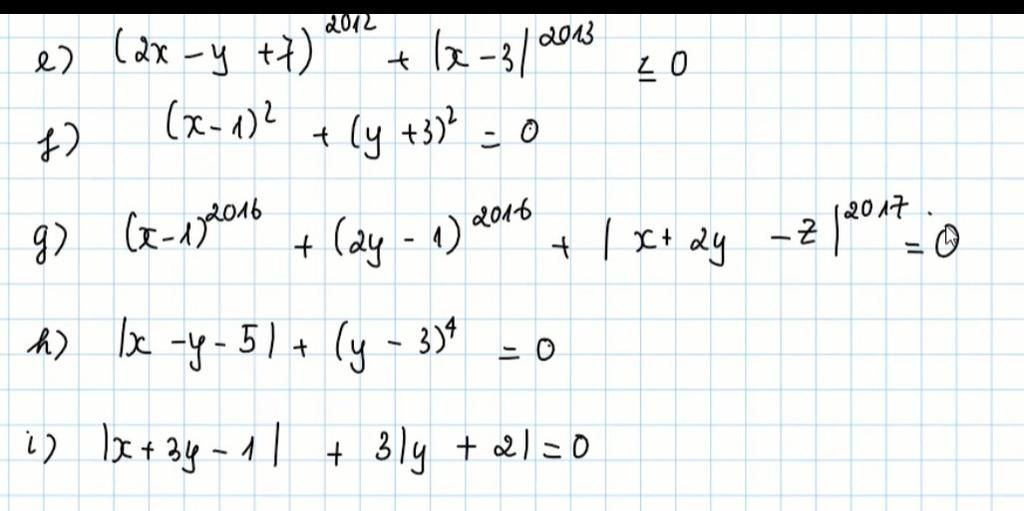 e) (2x - y + 7)^2012 + |x - 3|^2013 ≤ 0
f) (x - 1)^2 + (y + 3)^2 = 0
g) (x - 1)^2016 + (2y - 1)^2016 + |x + 2y - z|^2017 = 0
h) |x - y - 5| + (y - 3)^4 = 0
i) |x + 3y - 1| + 3|y + 2| = 0